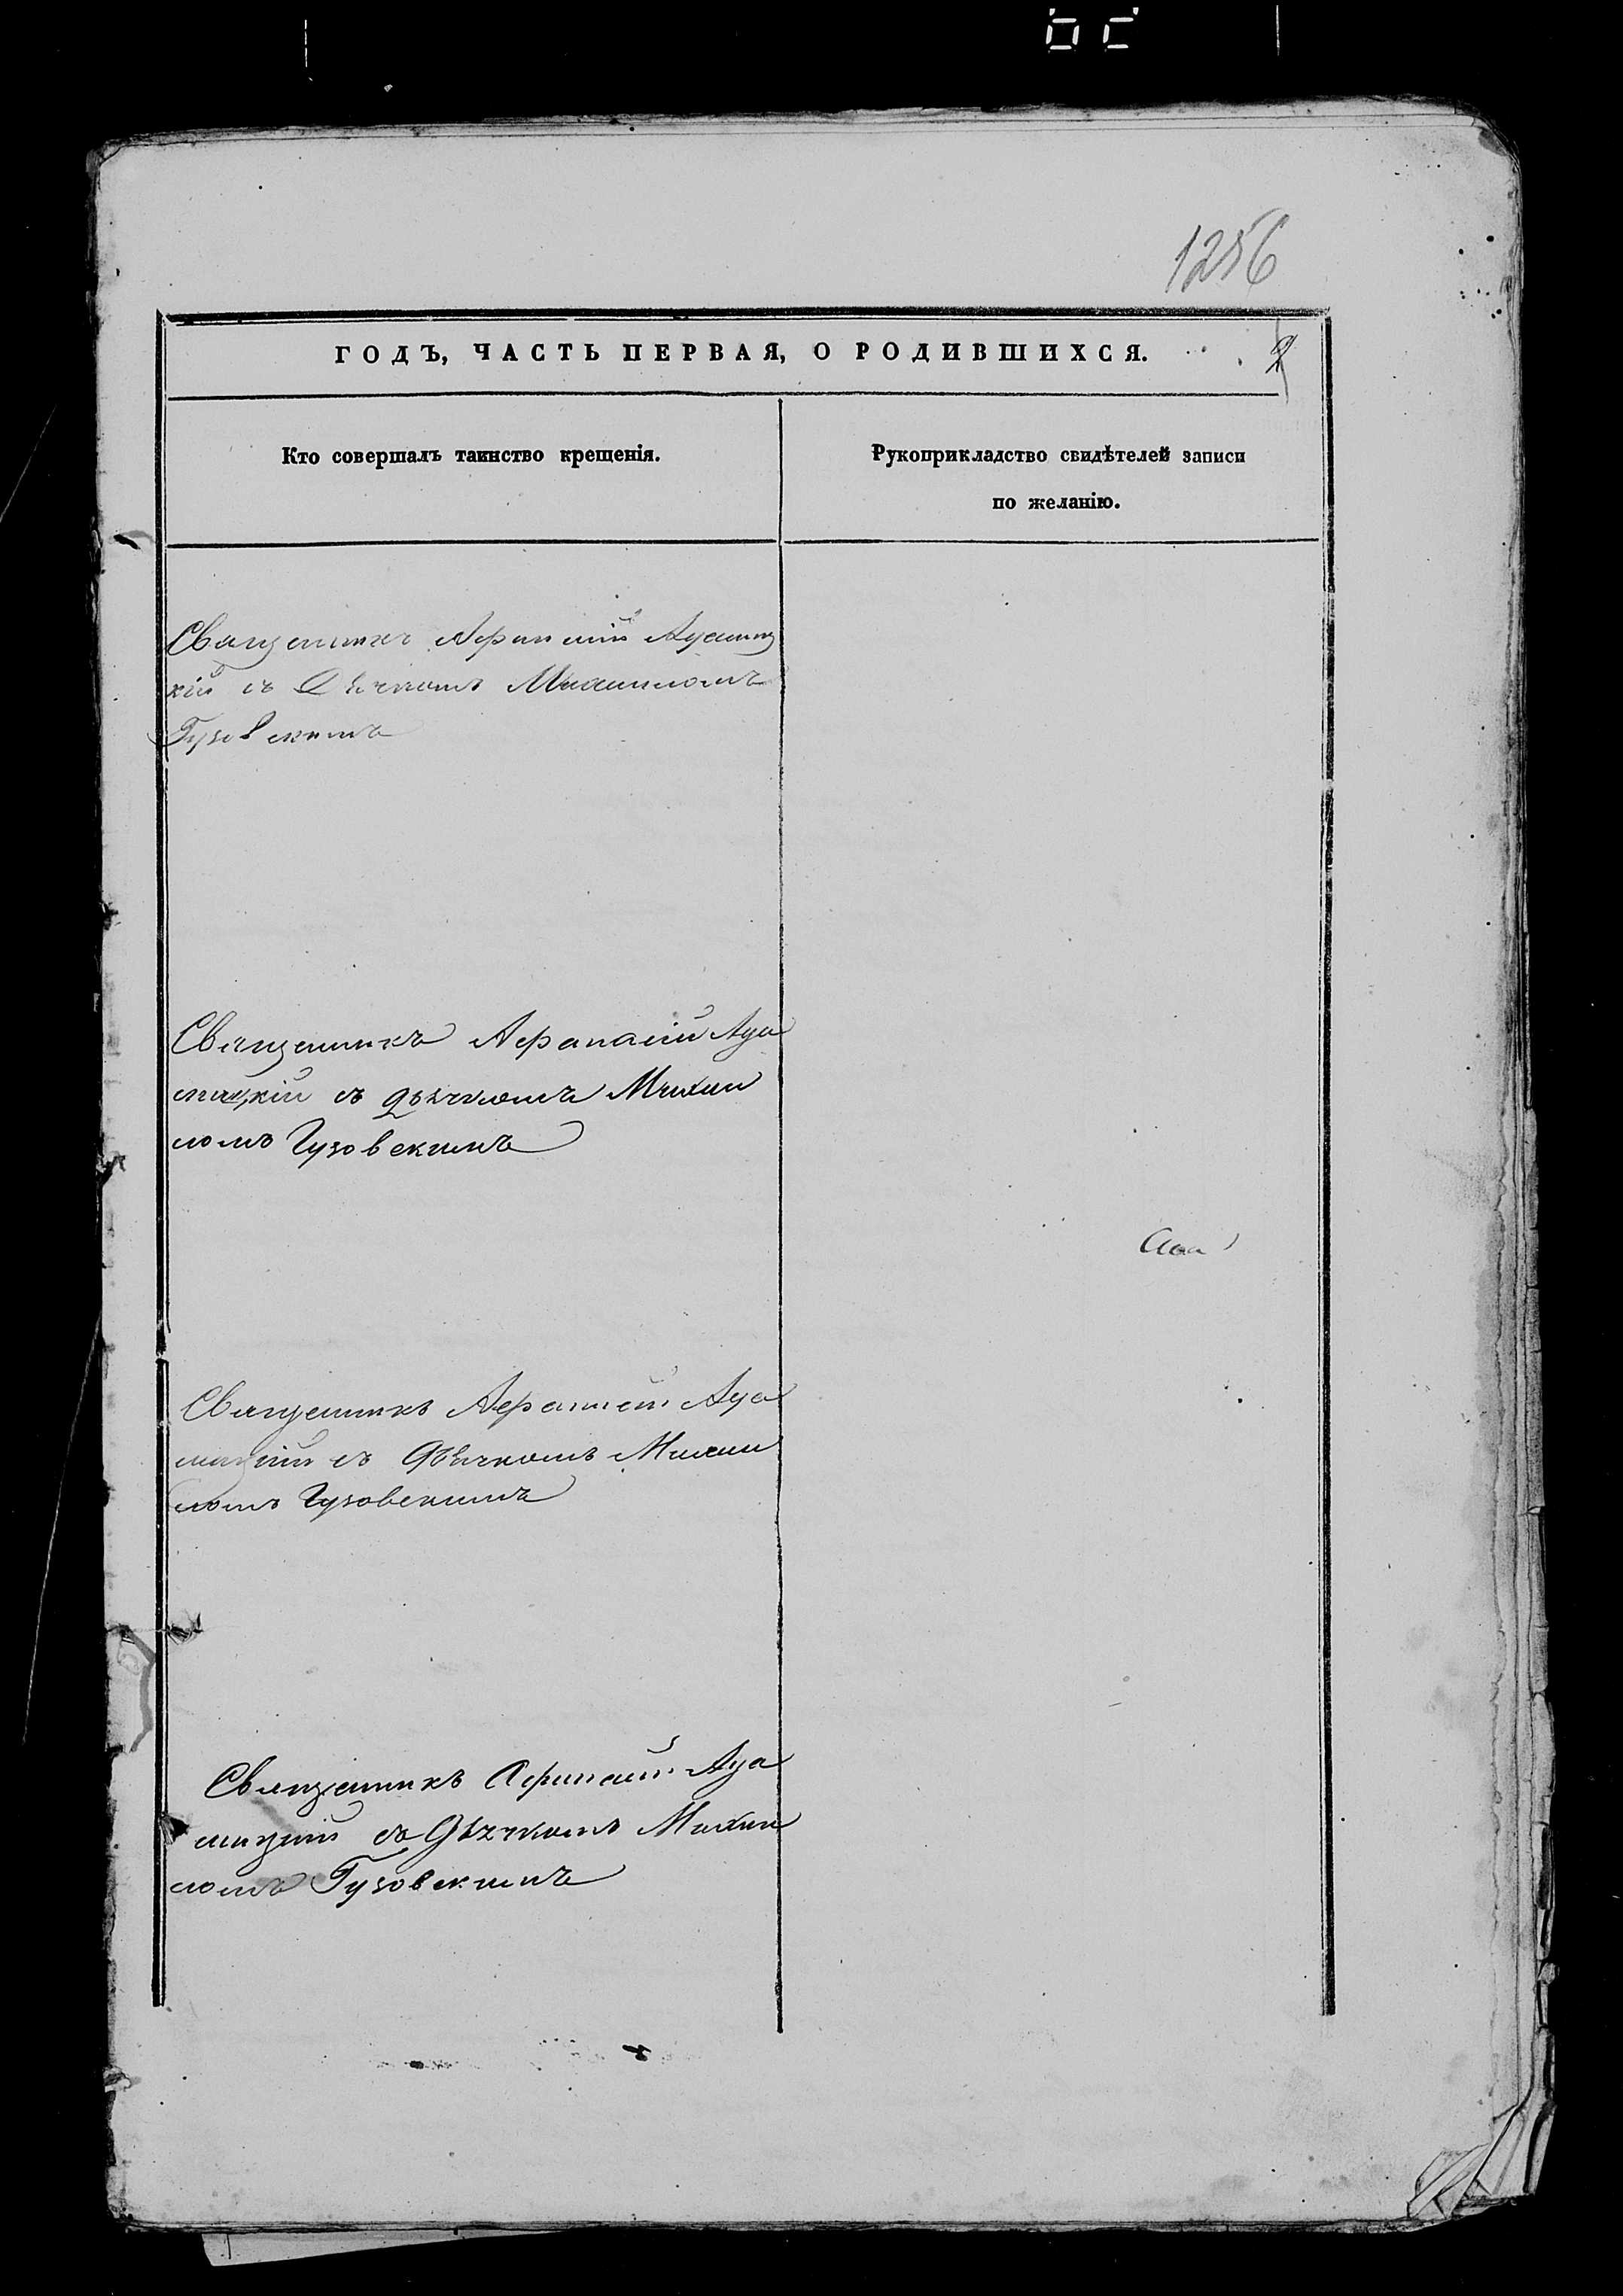 1256
ГОДЪ, ЧАСТЬ ПЕРВАЯ, О РОДИВШИХСЯ.
2
Кто совершалъ таинство крещенія.
Рукоприкладство свидѣтелей записи
по желанію.
Священникъ Афанасій
кій съ Дьячкомъ Михаиломъ
Гузовскимъ
Священникъ Афанасій
съ дьячкомъ Михаи
ломъ Гузовскимъ
Священникъ Афанасій
съ Дьячкомъ Михаи
ломъ Гузовскимъ
Священникъ Афанасій
съ Дьячкомъ Михаи
ломъ Гузовскимъ